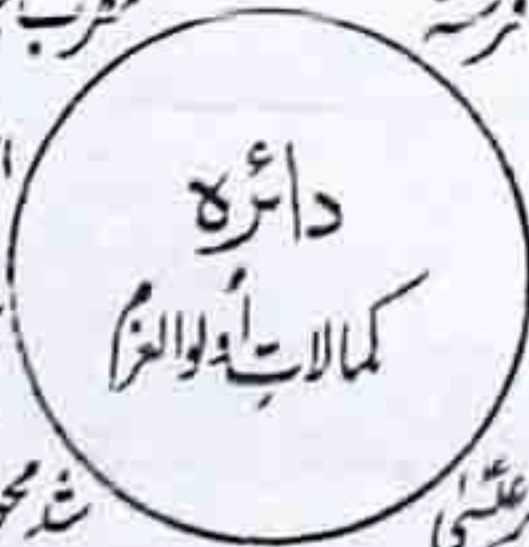 دائرہ
کمالاتِ أولوالعزم